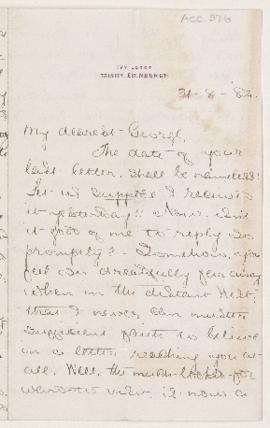 ACC. 276
IVY LODGE
TRINITY, EDINBURGH
31-8-'82.
My dearest George,
The date of your
last letter shall be nameless!
Let us suppose I received
it yesterday!! Now isn't
it good of me to reply so
promptly? Somehow, you
feel so dreadfully far away
when in the distant West,
that I never can muster
sufficient faith to believe
in a letter reaching you at
all. Well, the much-looked-for
visit, is now a